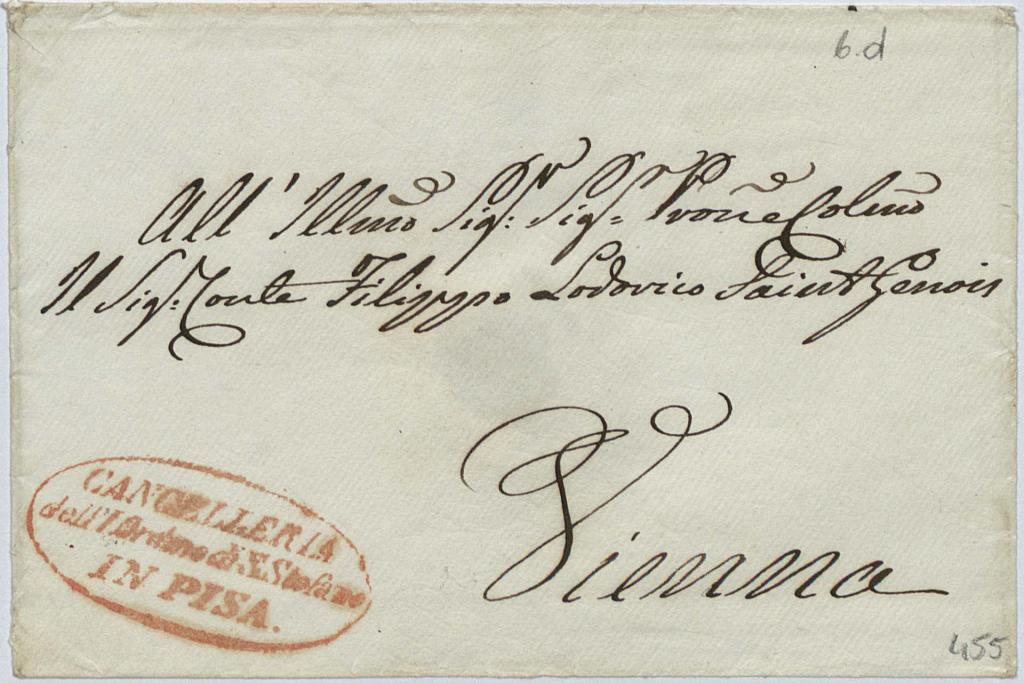 6.d
All' Illmo Sig:r Sig:r Prone Colmo
Il Sig: Conte Filippo Lodovico Saint Genois
Vienna
CANCELLERIA
dell'I. Ordine di S. Stefano
IN PISA.
455